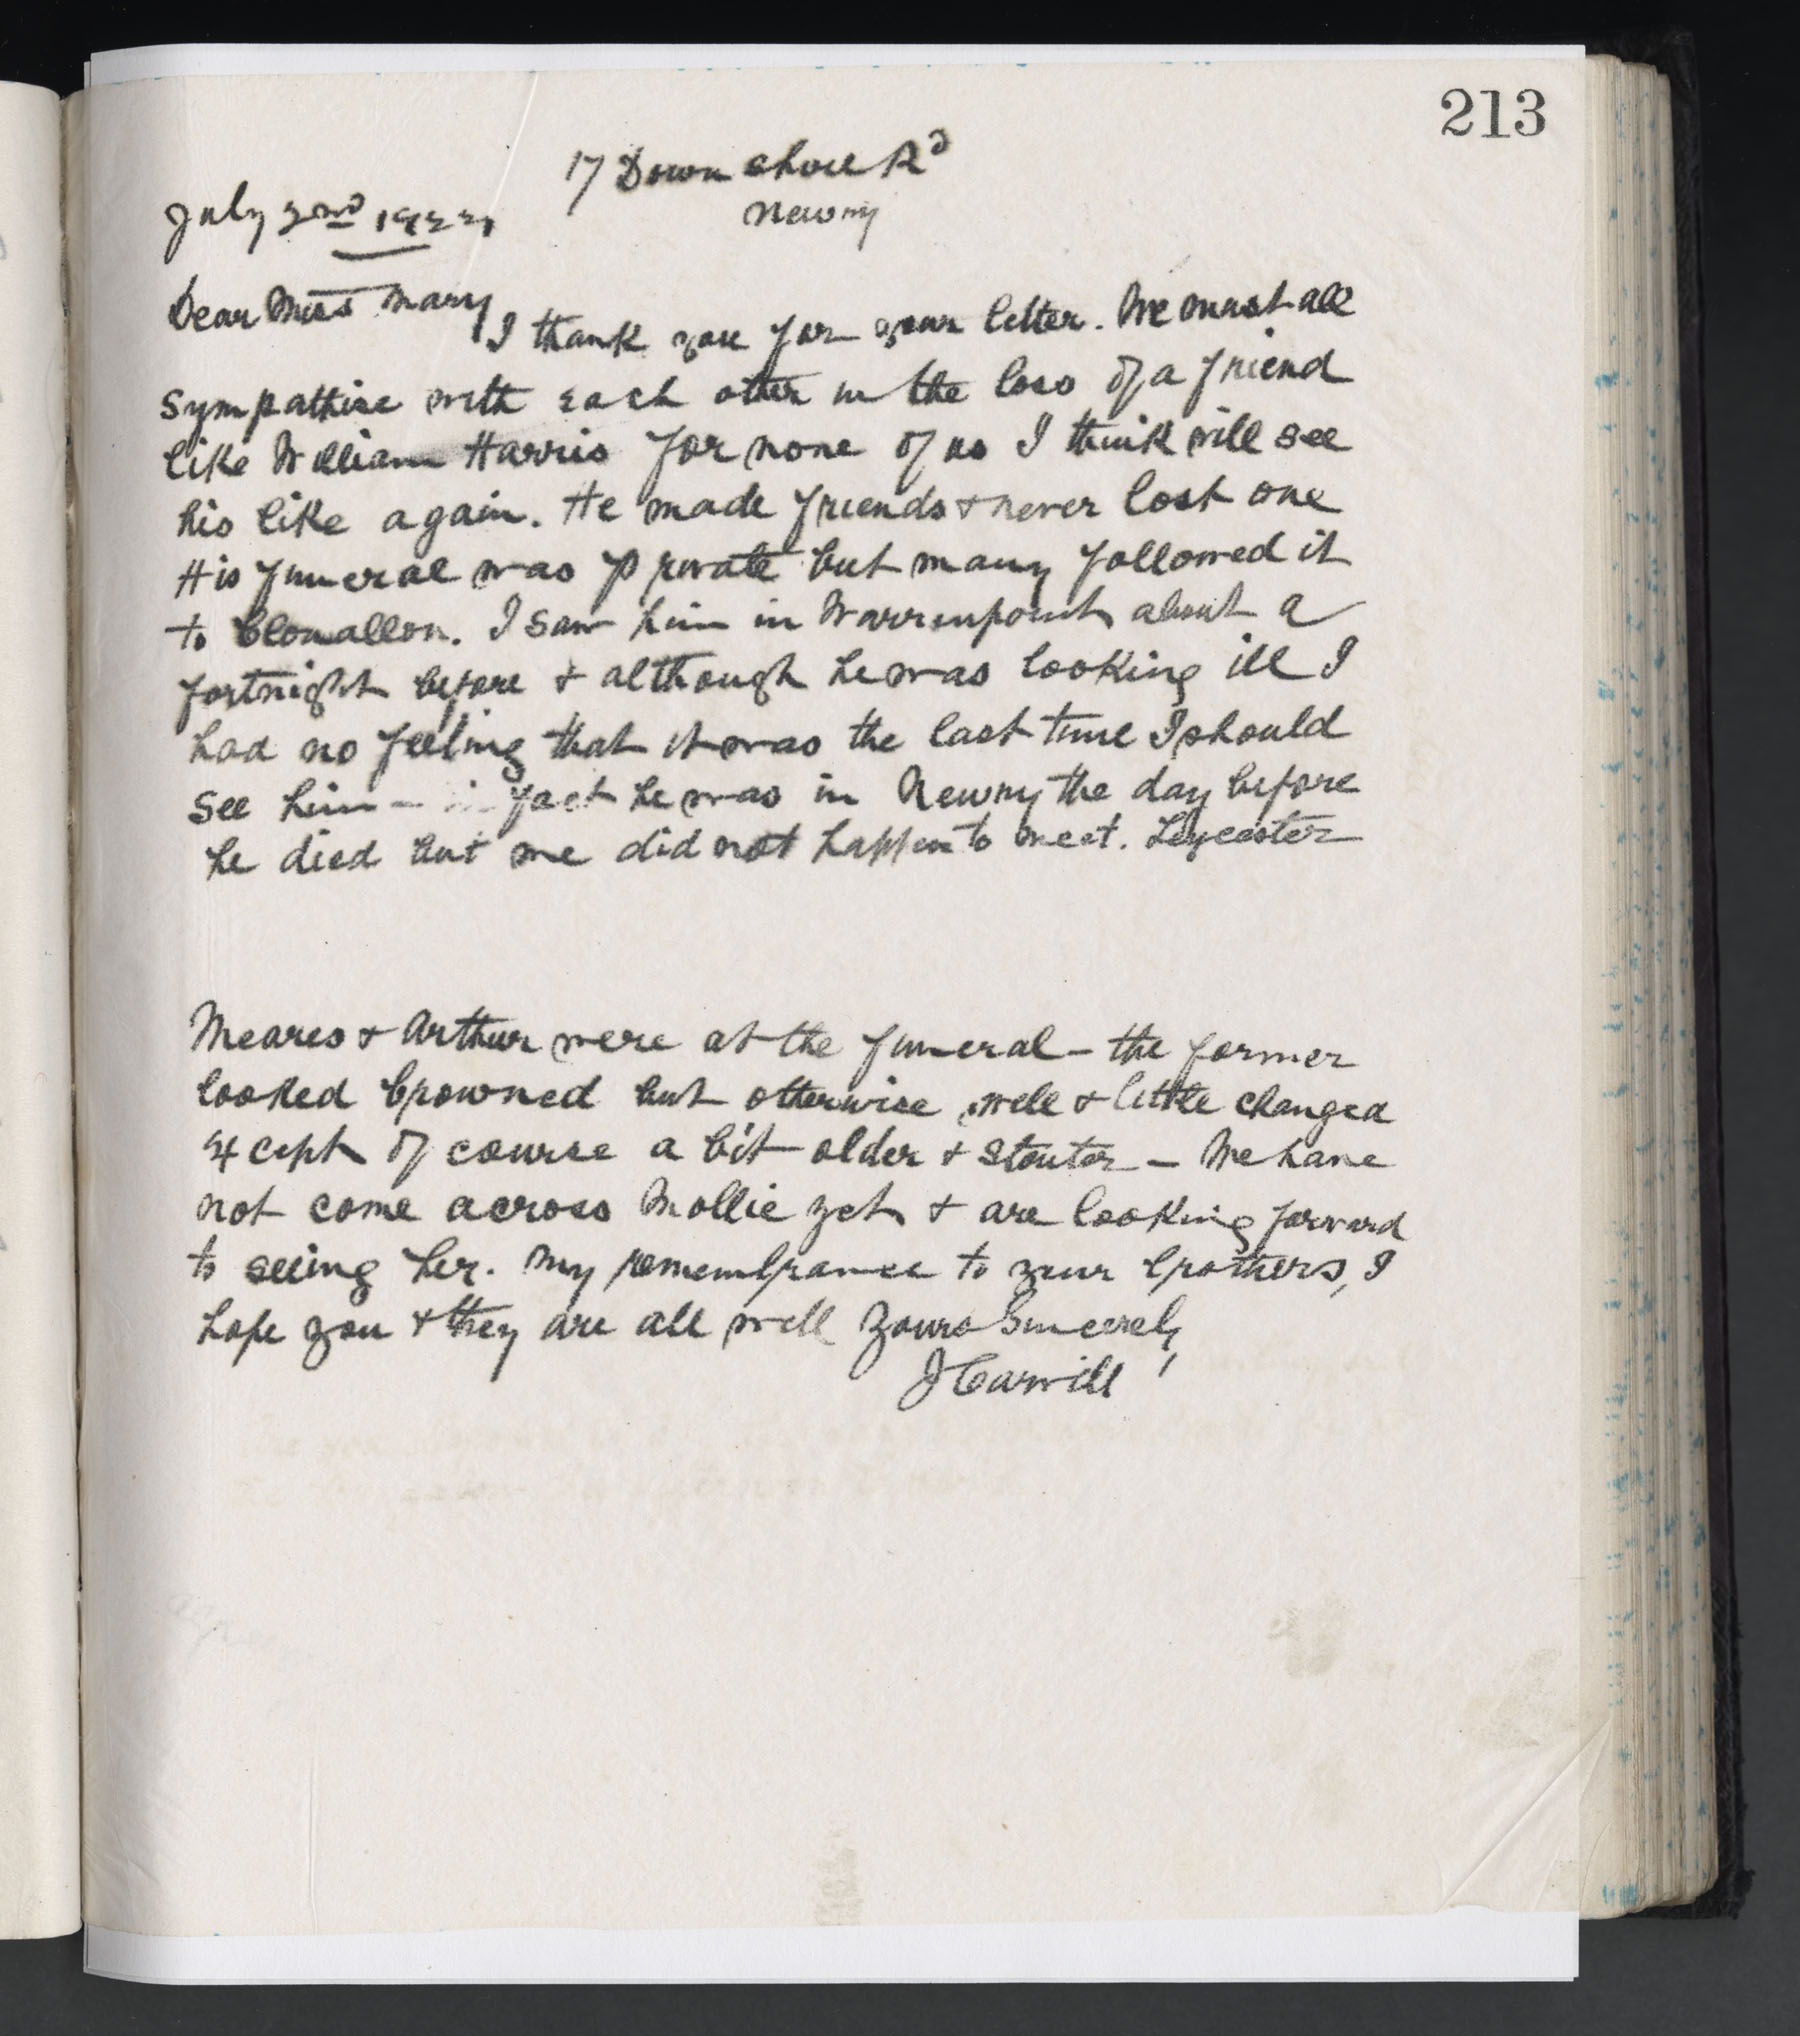 213
17 Downshire Rd
Newry
July 2nd
Dear Miss Mary
I thank you for your letter. We must all
sympathise with each other in the loss of a friend
like William Harris for none of us I think will see
his like again. He made friends & never lost one
His funeral was private but many followed it
to Clonallon. I saw him in Warrenpoint about a
fortnight before & although he was looking ill I
had no feeling that it was the last time I should
see him - in fact he was in Newry the day before
he died but we did not happen to meet. Leycester
Meares & Arthur were at the funeral - the former
looked browned but otherwise well & little changed
except of course a bit older & stouter - We have
not come across Mollie yet & are looking forward
to seeing her. My remembrance to your brothers, I
hope you & they are all well Yours Sincerely
J Carvill